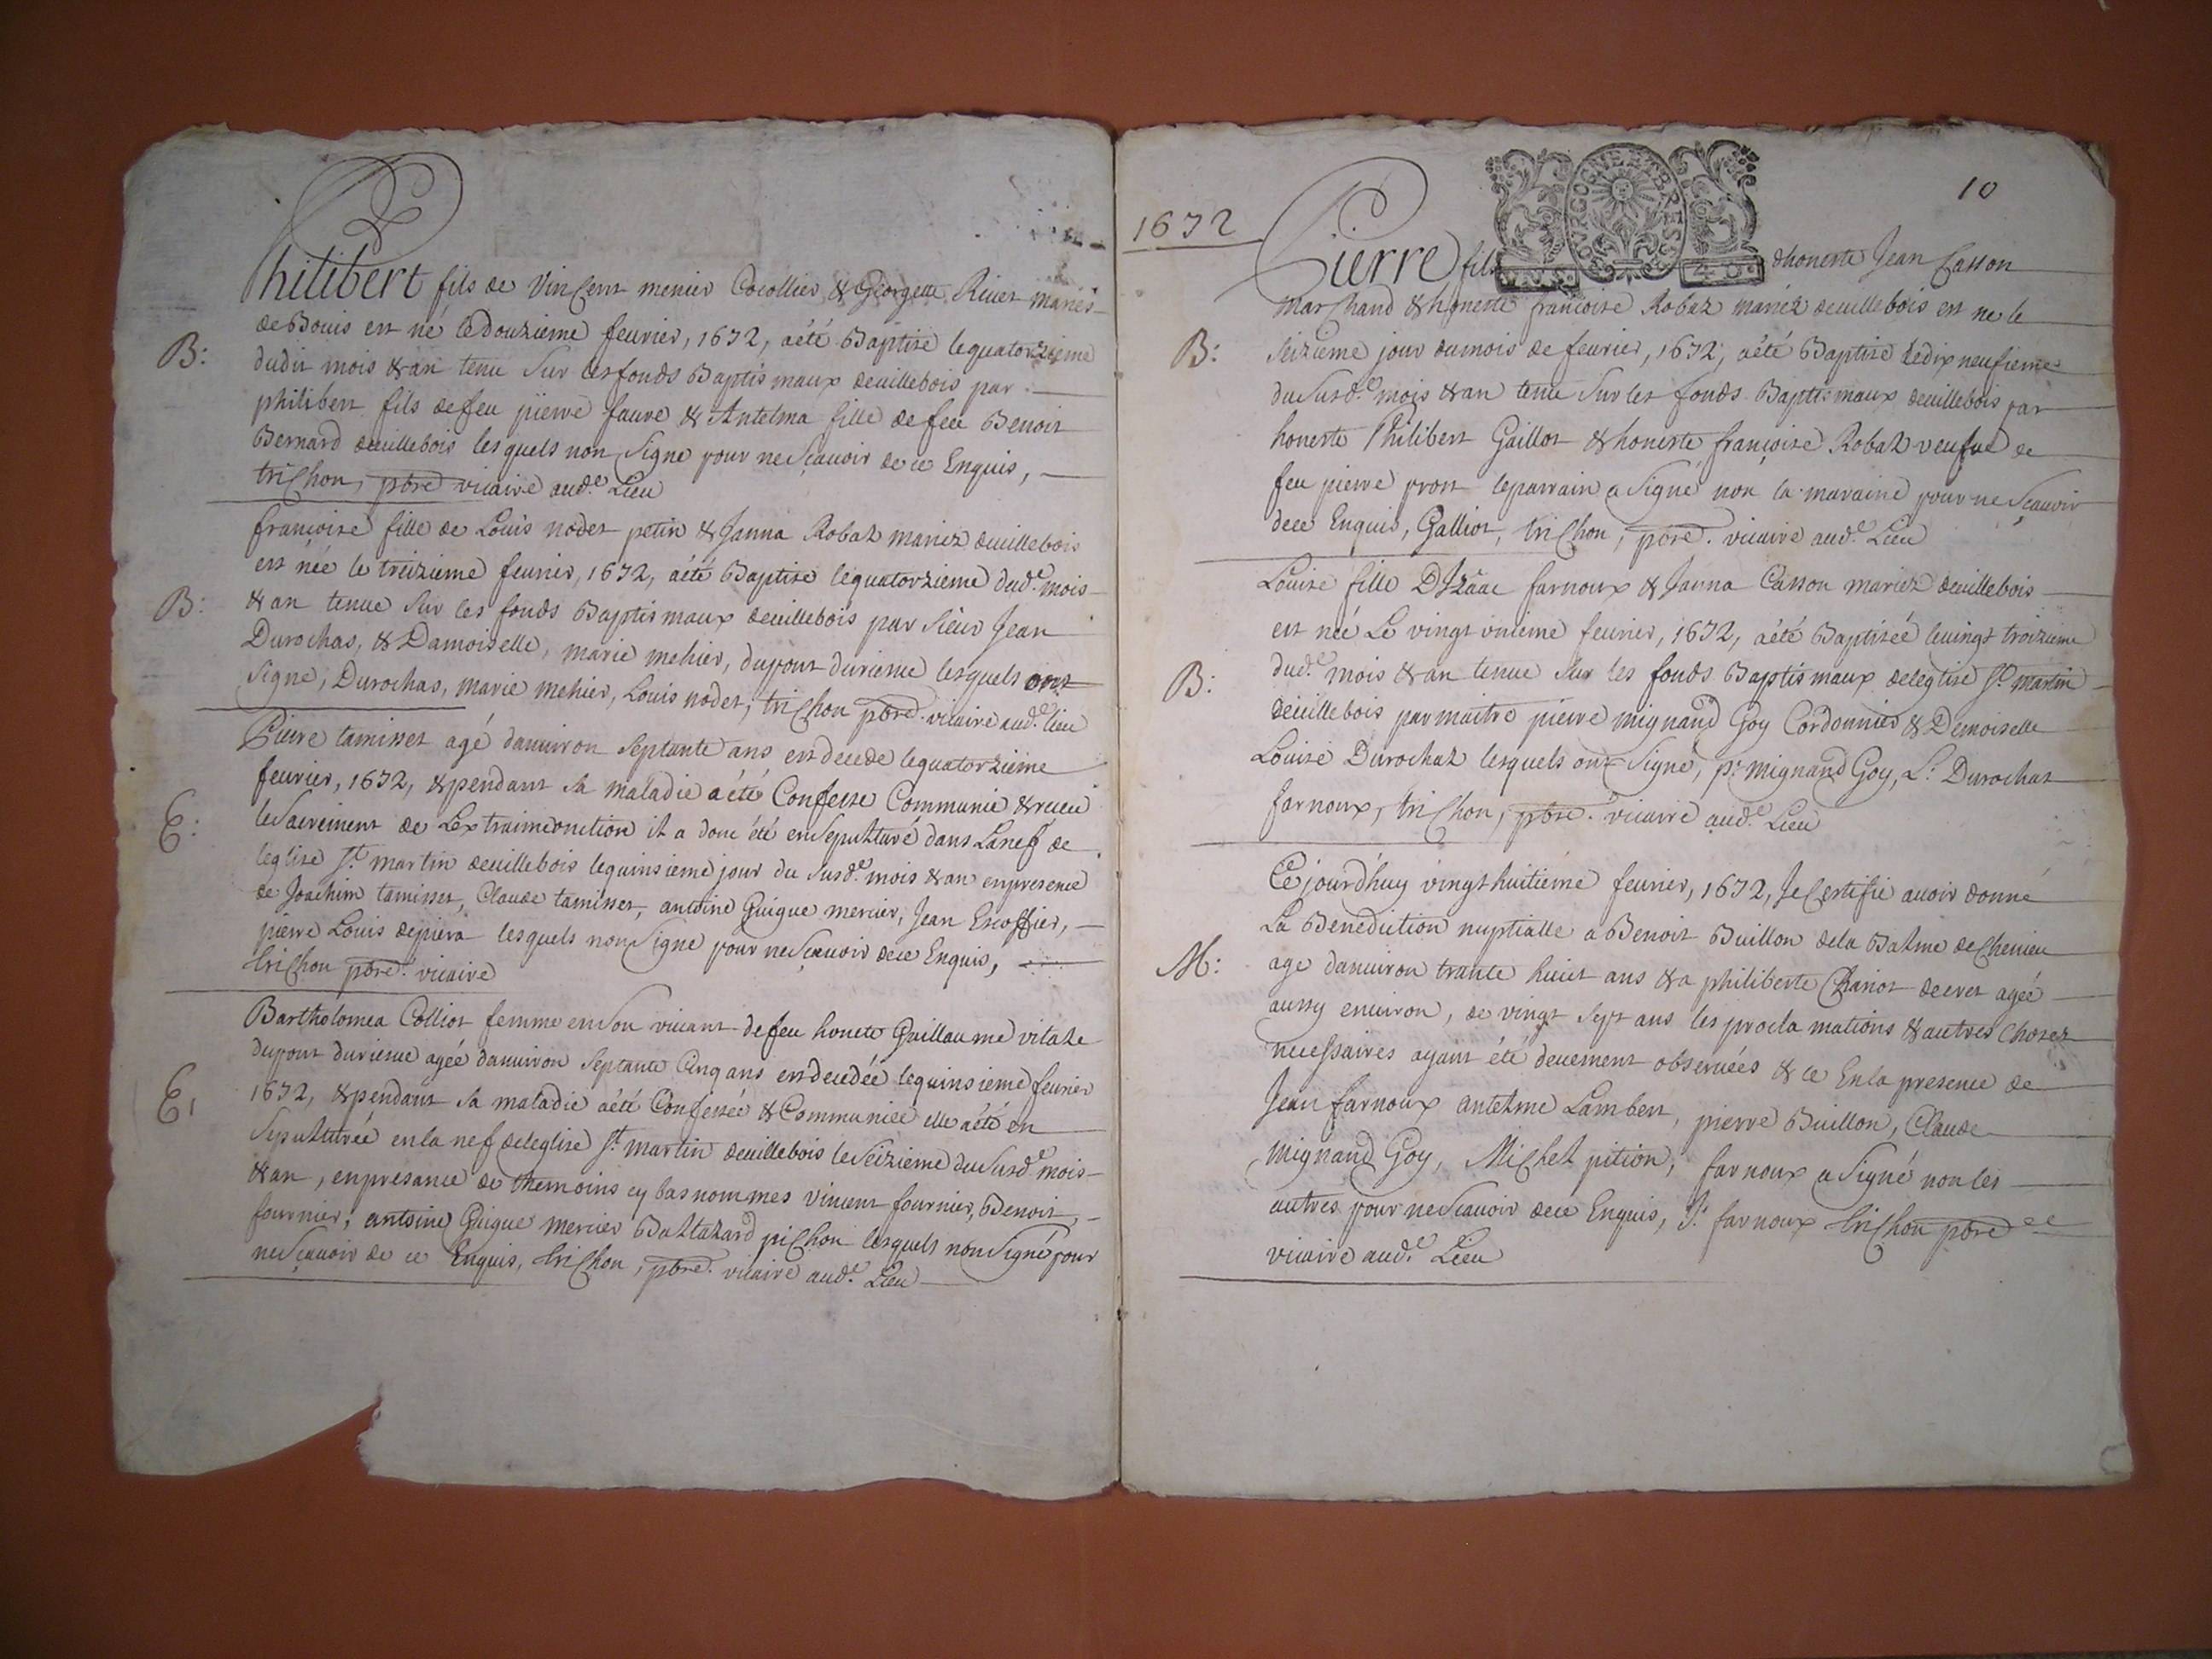 Philibert fils de Vincent menier Cocollier & Georgette Rivet mariés
de Bouis est né le douzieme feurier, 1672, aété Baptisé lequatorzieme
B: dudit mois & an tenu Sur les fonds Baptismaux deuillebois par
philibert fils defeu pierre faure & Antelma fille de feu Benoit
Bernard deuillebois lesquels non Signe pour ne Sçauoir de ce Enquis,
triChon, pbre vicaire aud.e Lieu
françoise fille de Louis nodet petin & Janna Robaz mariez deuillebois
est née le treizieme feurier, 1672, aété Baptise lequatorzieme dud.e mois
B: & an tenue Sur les fonds Baptismaux deuillebois par Sieur Jean
Durochas, & Damoiselle, marie mehier, dupont durieme lesquels ont
Signe, Durochas, marie mehier, Louis nodet, triChon pbre. vicaire aud.e lieu
Pierre tamisset agé danuiron Septante ans est decede lequatorzieme
feurier, 1672, & pendant Sa maladie a été Confesse Communie & receu
E: leSacrement de Lextraimeonction il a donc été enSepulturé dans Lanef de
léglise S.t martin deuillebois lequinsieme jour du Susd.e mois & an enpresence
de Joachim tamisset, Claude tamisset, antoine Guigue mercier, Jean Escoffier,
pierre Louis depiera lesquels non Signe pour ne Sçauoir dece Enquis,
triChon pbre. vicaire
Bartholomea Colliot femme enSon viuant defeu honete Guillaume vitale
dupont durieme agée danuiron Septante Cinq ans est decedée lequinsieme feurier
E: 1672, & pendant Sa maladie aété Confessée & Communiée elle aété en
Sepulturée enla nef deleglise S.t martin deuillebois leSeizieme duSusd.e mois
& an, enpresance de themoins cy bas nommes vincent fournier, Benoit
fournier, antoine Guigue mercier Baltazard piChon lesquels non Signé pour
ne Sçauoir de ce Enquis, triChon, pbre. vicaire aud.e Lieu
1672
10
BOURGOGNE ET BRESSE
Pierre fils dhoneste Jean Casson
marChand & honeste françoise Robaz mariéz deuillebois est ne le
B: Seizieme jour dumois de feurier, 1672, aété Baptisé ledixneufieme
du Susd.e mois & an tenu Sur les fonds Baptismaux deuillebois par
honeste Philibert Gaillot & honeste françoise Robaz veufue de
feu pierre prost leparrain a Signé non la maraine pour ne Sçauoir
dece Enquis, Galliot, triChon, pbre. vicaire aud.e Lieu
Louise fille DIzaac farnoux & Janna Casson mariez deuillebois
est née Le vingt unieme feurier, 1672, aété Baptiséé levingt troizieme
B: dud.e mois & an tenue Sur les fonds Baptismaux deleglise S.t martin
deuillebois parmaitre pierre mignand Goy Cordonnier & Demoiselle
Louise Durochaz lesquels ont Signé, p: mignand Goy, L: Durochat
farnoux, triChon, pbre. vicaire aud.e Lieu
Cejourd'huy vingt huitiéme feurier, 1672, Je Certifie auoir donné
La Benediction nuptialle a Benoit Buillon dela Balme deChenieu
M: age danuiron trante huict ans & a philiberte Chariot decret agéé
aussy enuiron, de vingt Sept ans les proclamations & autres Choses
necessaires ayant été deuement obseruées & ce Enla presence de
Jean farnoux antelme Lambert, pierre Buillon, Claude
mignand Goy, MiChel pition, farnoux a Signé non les
autres pour ne Scauoir dece Enquis, J: farnoux triChon pbre
vicaire aud.e Lieu